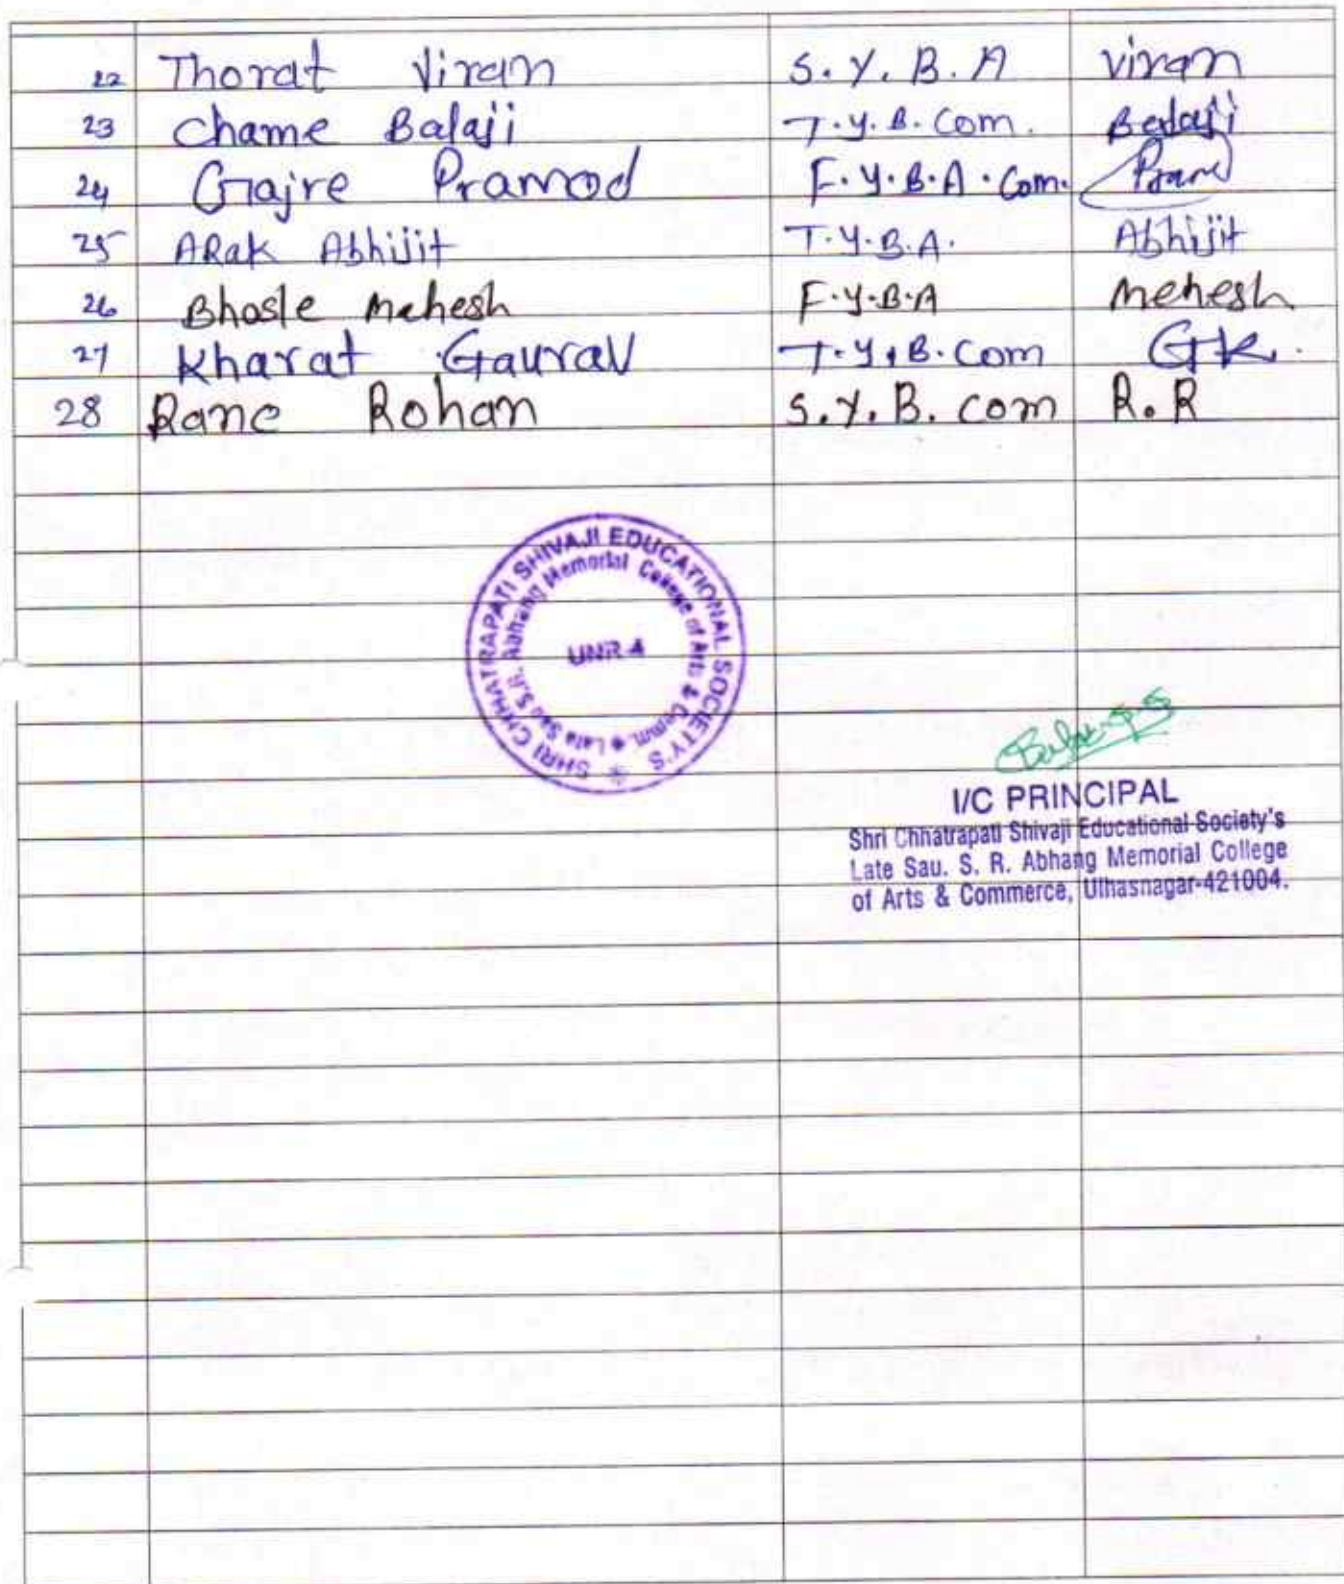 22 Thorat Viran S.Y.B.A viran
23 Chame Balaji T.y.B.Com. Balaji
24 Gajre Pramod F.y.B.A.Com. Pram
25 ARak Abhijit T.y.B.A. Abhijit
26 Bhosle Mehesh F.y.B.A Mehesh
27 Kharat Gaurav T.y.B.Com GK.
28 Rane Rohan S.Y.B.com R.R
SHRI CHHATRAPATI SHIVAJI EDUCATIONAL SOCIETY'S
Late Sau S.R. Abhang Memorial College of Arts & Comm.
UNR 4
I/C PRINCIPAL
Shri Chhatrapati Shivaji Educational Society's
Late Sau. S. R. Abhang Memorial College
of Arts & Commerce, Ulhasnagar-421004.